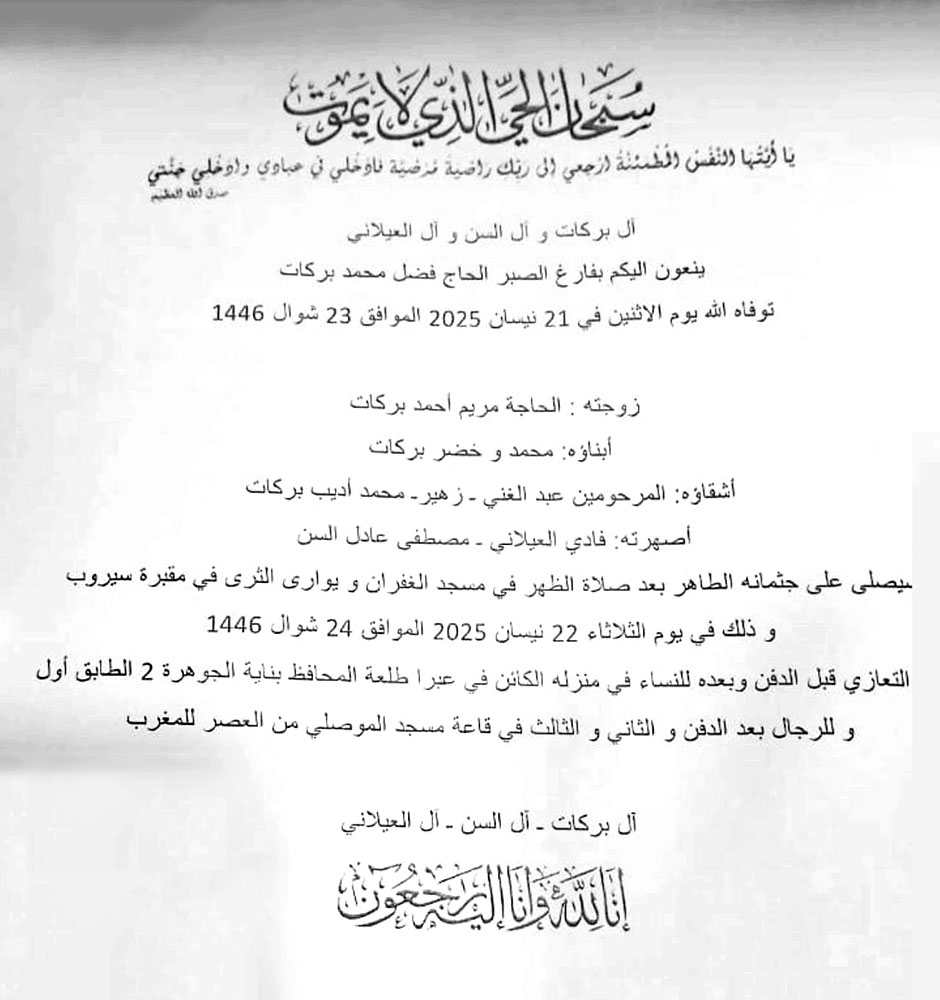 سُبْحَانَ الحَيِّ الَّذِي لَا يَمُوتُ
يَا أَيَّتُهَا النَّفْسُ الْمُطْمَئِنَّةُ ارْجِعِي إِلَى رَبِّكِ رَاضِيَةً مَرْضِيَّةً فَادْخُلِي فِي عِبَادِي وَادْخُلِي جَنَّتِي
صدق الله العظيم
آل بركات و آل السن و آل العيلاني
ينعون اليكم بفارغ الصبر الحاج فضل محمد بركات
توفاه الله يوم الاثنين في 21 نيسان 2025 الموافق 23 شوال 1446
زوجته : الحاجة مريم أحمد بركات
أبناؤه: محمد و خضر بركات
أشقاؤه: المرحومين عبد الغني - زهير- محمد أديب بركات
أصهرته: فادي العيلاني - مصطفى عادل السن
سيصلى على جثمانه الطاهر بعد صلاة الظهر في مسجد الغفران و يوارى الثرى في مقبرة سيروب
و ذلك في يوم الثلاثاء 22 نيسان 2025 الموافق 24 شوال 1446
التعازي قبل الدفن وبعده للنساء في منزله الكائن في عبرا طلعة المحافظ بناية الجوهرة 2 الطابق أول
و للرجال بعد الدفن و الثاني و الثالث في قاعة مسجد الموصلي من العصر للمغرب
آل بركات - آل السن - آل العيلاني
إِنَّا لِلَّهِ وَإِنَّا إِلَيْهِ رَاجِعُونَ